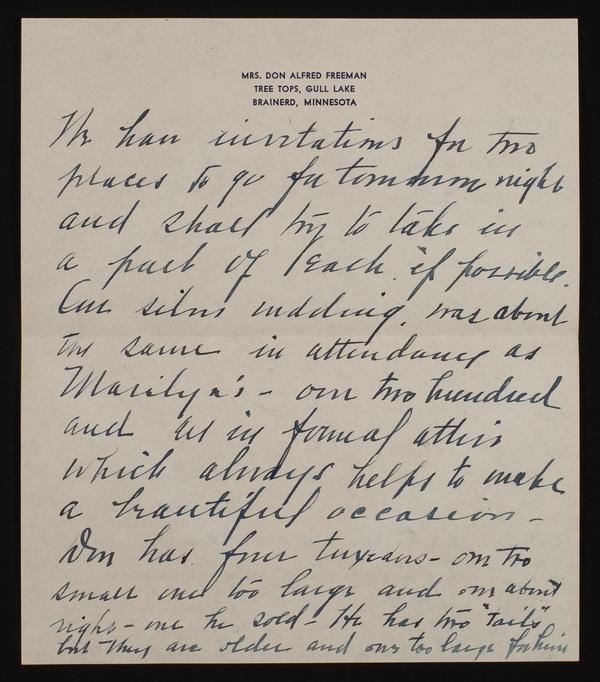 MRS. DON ALFRED FREEMAN
TREE TOPS, GULL LAKE
BRAINERD, MINNESOTA
We have invitations for two
places to go for tomorrow night
and shall try to take in
a part of each if possible.
Our silver wedding was about
the same in attendance as
Marilyn's - over two hundred
and all in formal attire
which always helps to make
a beautiful occasion -
Don has four tuxedoes - one too
small one too large and one about
right - one he sold - He has two "Tails"
but they are older and one too large for him